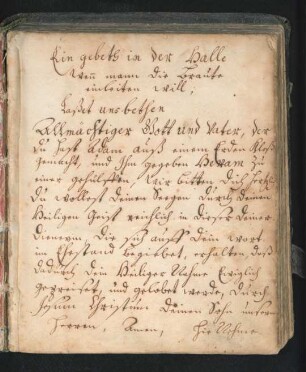 Ein gebeth in der Halle
Wen mann die Braute
einleiten will,
Laßet uns bethen
Allmächtiger Gott und Vater, der
du hast Adam auß einem Erden Kloß
gemacht, und Ihm gegeben Hevam zu
einer gehülffen, Wir bitten dich
du wollest deinen Seegen durch deinen
Heiligen Geist reichlich in dieser deiner
dienerin, die sich auff dein wort
im Ehestand begiebet, erhalten, daß
dadurch dein Heiliger Nahme Ewiglich
gepreiset, und gelobet werde, durch
Jesum Christum deinen Sohn unsern
Herren, Amen,